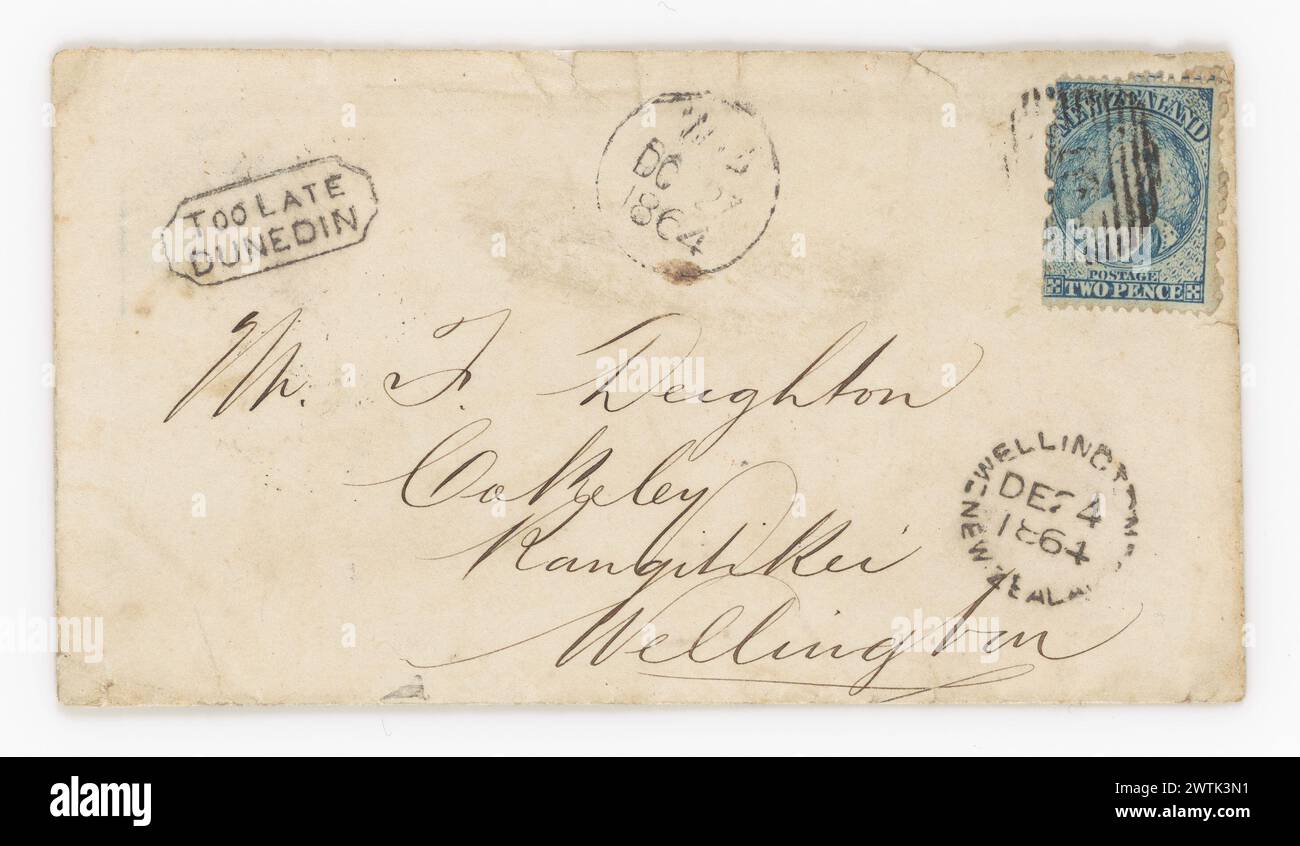 TOO LATE
DUNEDIN
DC
1864
ZEALAND
POSTAGE
TWO PENCE
Mr. F. Deighton
Oakeley
Rangitikei
Wellington
WELLINGT
DE 24
1864
NEW ZEALA
alamy
Image ID: 2WTK3N1
www.alamy.com